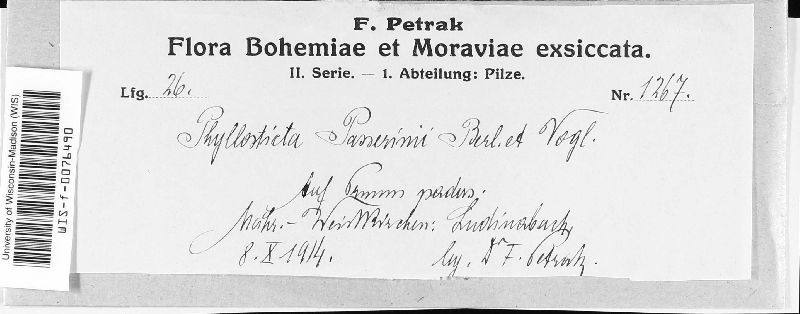 F. Petrak
Flora Bohemiae et Moraviae exsiccata.
II. Serie. — 1. Abteilung: Pilze.
Lfg. 26.
Nr. 1267.
Phyllosticta Passerinii Berl. et Vogl.
Auf Prunus padus.
Mähr.-Weisskirchen: Ludinabach,
8. X 1914.
lg. Dr F. Petrak.
University of Wisconsin-Madison (WIS)
WIS-f-0076490